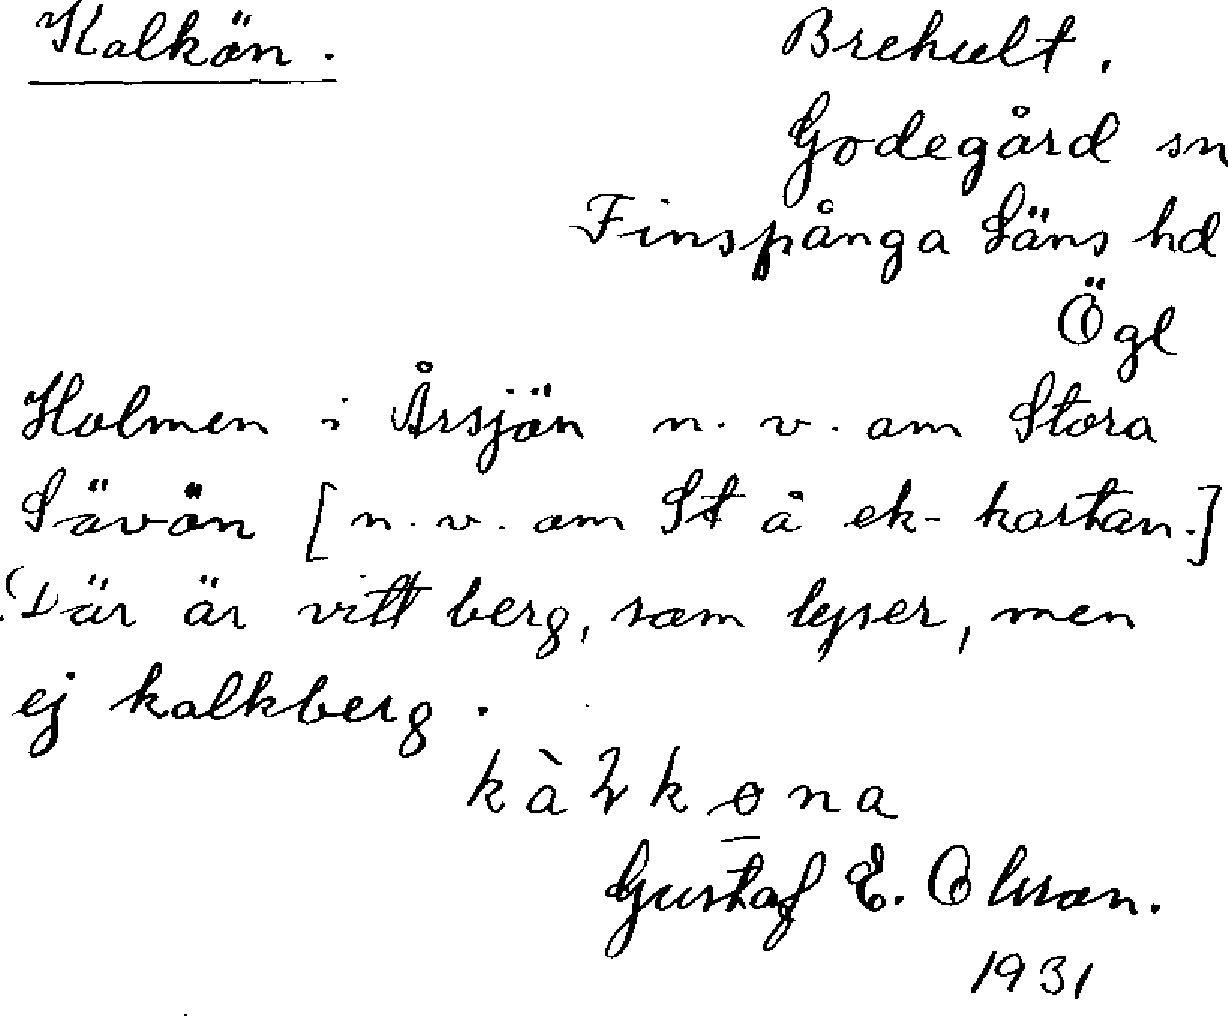 Kalkön. Brehult.
Godegård sn
Finspånga Läns hd
Ögl
Holmen i Årsjön n.v. om Stora
Sävön [n.v. om St å ek-kartan.]
Där är vitt berg, som lyser, men
ej kalkberg.
Gustaf E. Olsson.
1931